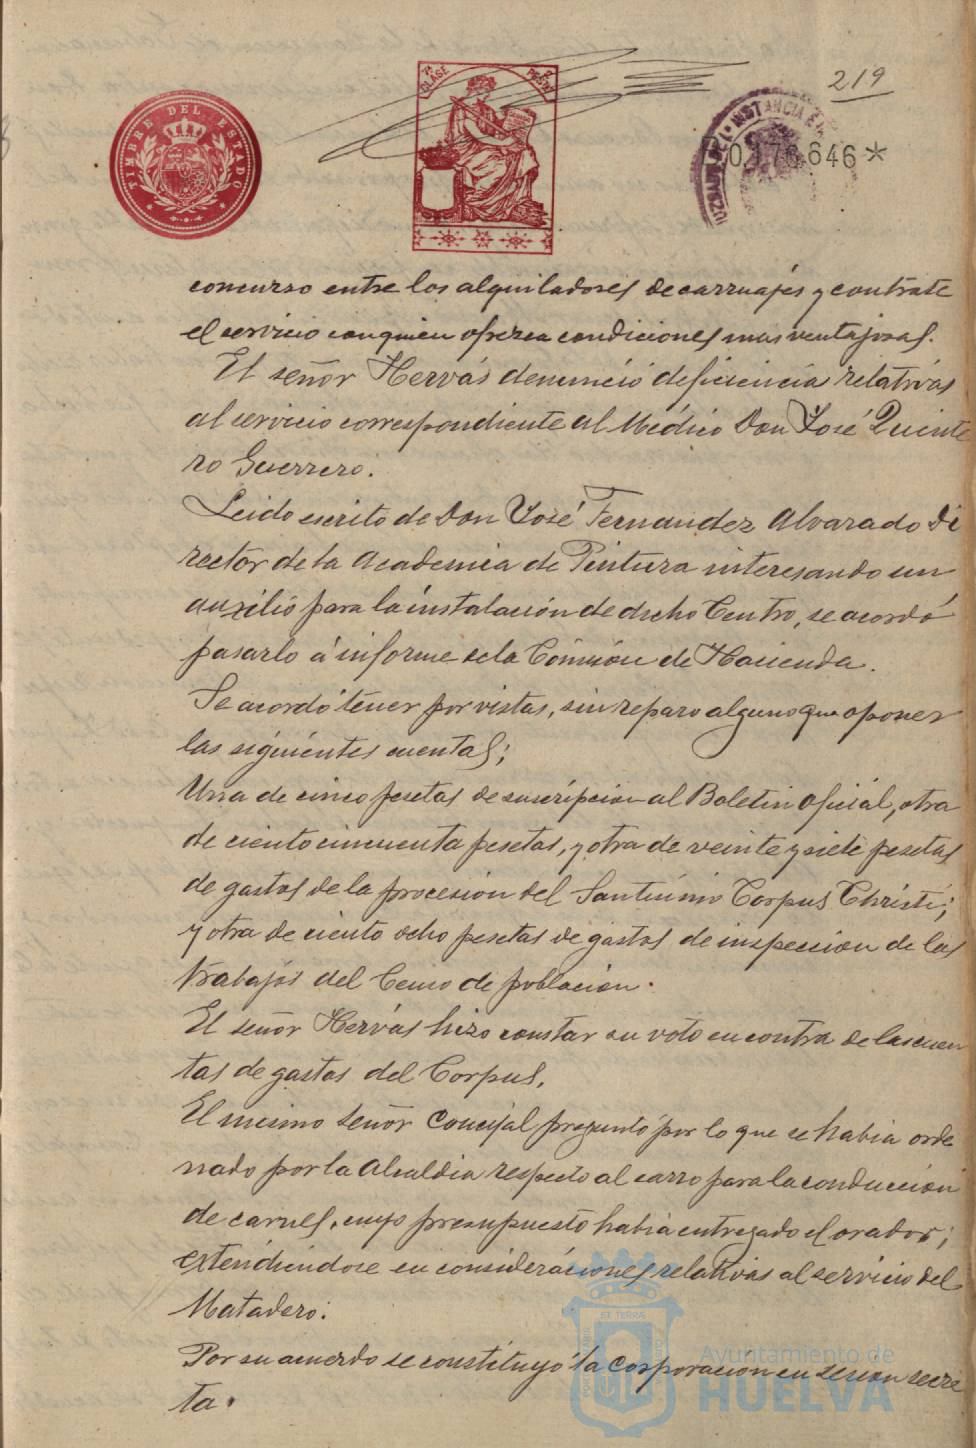 219
TIMBRE DEL ESTADO
7ª CLASE
INSTANCIA E
646*
concurso entre los alquiladores de carruajes y contrate
el servicio con quien ofrezca condiciones mas ventajosas.
El señor Hervás denunció deficiencias relativas
al servicio correspondiente al Médico Don José Quinte
ro Guerrero.
Leido escrito de Don José Fernandez Alvarado Di
rector de la Academia de Pintura interesando un
auxilio para la instalación de dicho Centro, se acordó
pasarlo á informe de la Comisión de Hacienda.
Se acordó tener por vistas, sin reparo alguno que oponer
las siguientes cuentas;
Una de cinco pesetas de suscripcion al Boletin oficial, otra
de ciento cincuenta pesetas, y otra de veinte y siete pesetas
de gastos de la procesion del Santisimo Corpus Christi;
y otra de ciento ocho pesetas de gastos de inspeccion de los
trabajos del Censo de poblacion.
El señor Hervás hizo constar su voto en contra de las cuen
tas de gastos del Corpus.
El mismo señor Concejal preguntó por lo que se habia orde
nado por la Alcaldia respecto al carro para la conduccion
de carnes, cuyo presupuesto habia entregado el orador;
extendiendose en consideraciones relativas al servicio del
Matadero.
Por su acuerdo se constituyó la Corporacion en sesion secre
ta.
Ayuntamiento de
HUELVA